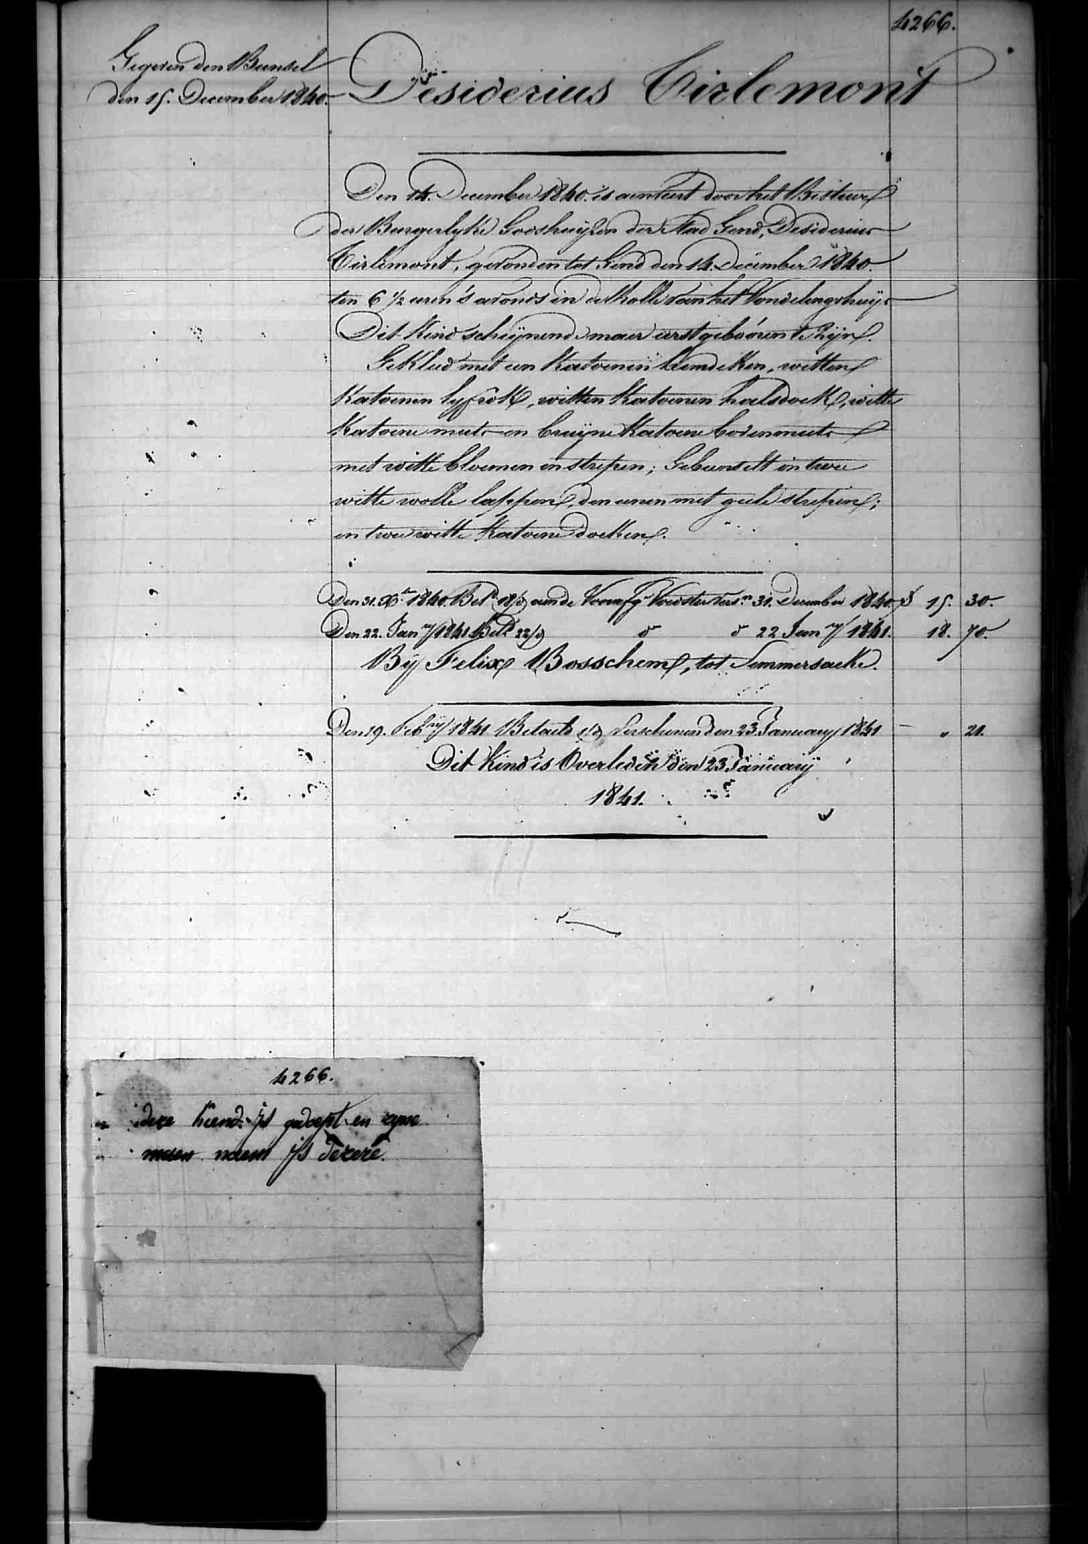 4266.
Gegeven den Bunsel
den 15. December 1840.
Désiderius Tirlemont
Den 14. December 1840. is aenveert door het Bestuer
der Burgerlyke Godshuyzen der Stad Gend, Desiderius
Tirlemont, gevonden tot Gend den 14 December 1840.
ten 6 1/2 uren 's avonds in de Rolle van het Vondelingshuys
Dit Kind scheijnende maer eerst geboóren te Zijn.
Gekleed met een Katoenen hemdeken, witten
Katoenen lyfrok, witten Katoenen halsdoek, witte
Katoene muts en bruyne Katoene bovenmuts
met witte bloemen en strepen; Gebunselt in twee
witte wolle lappen, den eenen met geele strepen;
en twee witte Katoene doeken.
Den 31. Xbr 1840. Bett 18/d aende Voorsfg 31. December 1840 15. 30.
Den 22. Jany 1841 Bett 22/d d° d° 22 Jany 1841. 18. 70.
Bij Felix Bosschem, tot Semmersacke.
Den 19. Febry 1841. Betaelt 1/d verschenen den 23. January 1841 — „ 21.
Dit Kind is Overleden den 23 Januarij
1841.
4266.
deze kiend ijs gedoept en zyne
naem ijs Dezere.